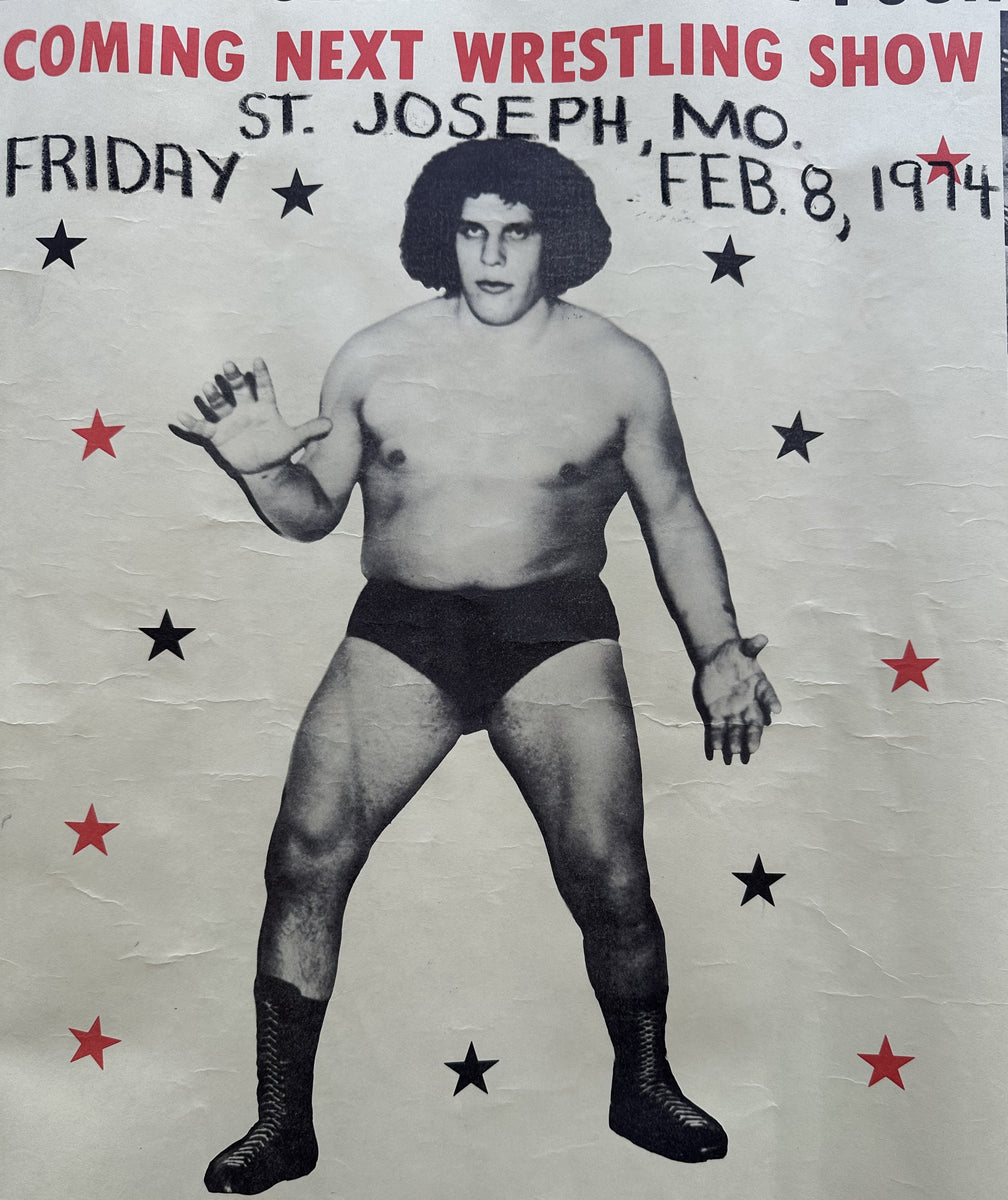 COMING NEXT WRESTLING SHOW
ST. JOSEPH, MO.
FRIDAY FEB. 8, 1974